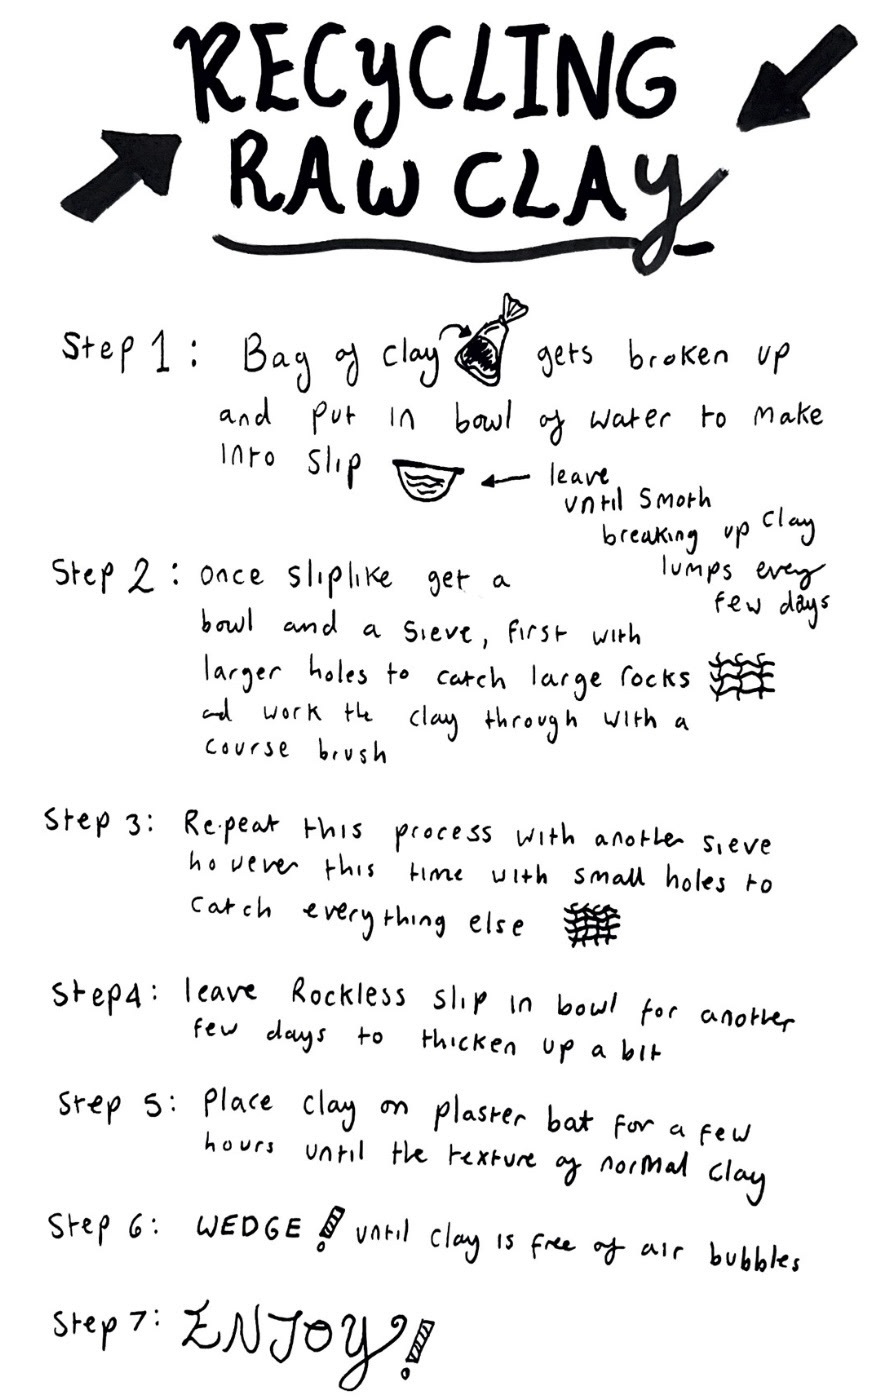 RECYCLING
RAW CLAY
Step 1: Bag of clay gets broken up
and put in bowl of water to make
into slip
leave
until smoth
breaking up clay
lumps every
few days
Step 2: once sliplike get a
bowl and a sieve, first with
larger holes to catch large rocks
and work the clay through with a
course brush
Step 3: Repeat this process with another sieve
however this time with small holes to
catch everything else
Step4: leave Rockless slip in bowl for another
few days to thicken up a bit
Step 5: Place clay on plaster bat for a few
hours until the texture of normal clay
Step 6: WEDGE! until clay is free of air bubbles
Step 7: ENJOY!